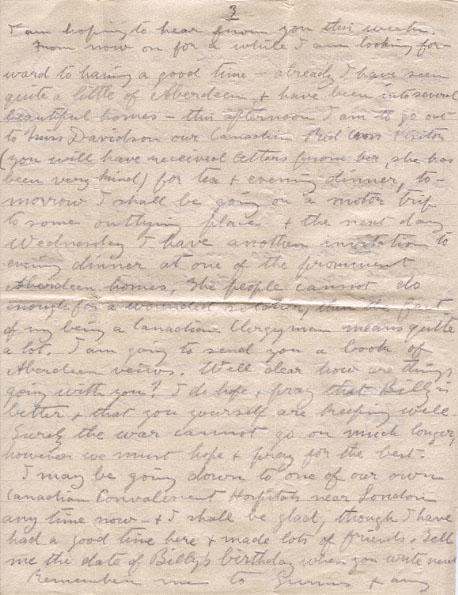 3
I am hoping to hear from you this week.
From now on for a while I am looking for-
ward to having a good time - already I have seen
quite a little of Aberdeen, & have been into several
beautiful homes - this afternoon I am to go out
to Miss Davidson our Canadian Red Cross Visitor
(you will have received letters from her, she has
been very kind) for tea & evening dinner, to-
morrow I shall be going on a motor trip
to some outlying place & the next day
Wednesday I have another invitation to
evening dinner at one of the prominent
Aberdeen homes. The people cannot do
enough for a wounded soldier, then the fact
of my being a Canadian Clergyman means quite
a lot. I am going to send you a book of
Aberdeen views. Well dear how are things
going with you? I do hope & pray that Billy is
better & that you yourself are keeping well.
Surely the war cannot go on much longer,
however we must hope & pray for the best.
I may be going down to one of our own
Canadian Convalescent Hospitals near London
any time now - & I shall be glad, though I have
had a good time here & made lots of friends. Tell
me the date of Billy's birthday when you write next
Remember me to & any